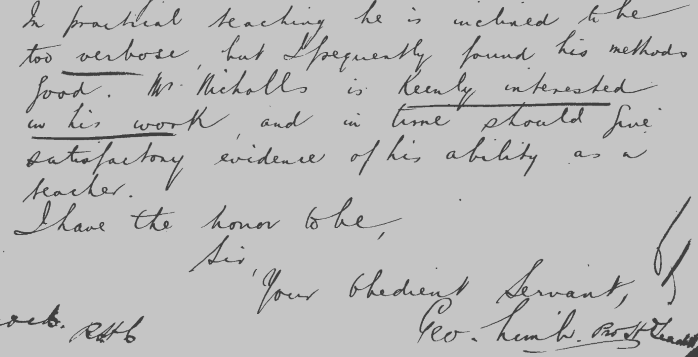 In practical teaching he is inclined to be
too verbose, but I frequently found his methods
good. Mr. Nicholls is keenly interested
in his work, and in time should give
satisfactory evidence of his ability as a
teacher.
I have the honor to be,
Sir,
Your Obedient Servant,
Geo.